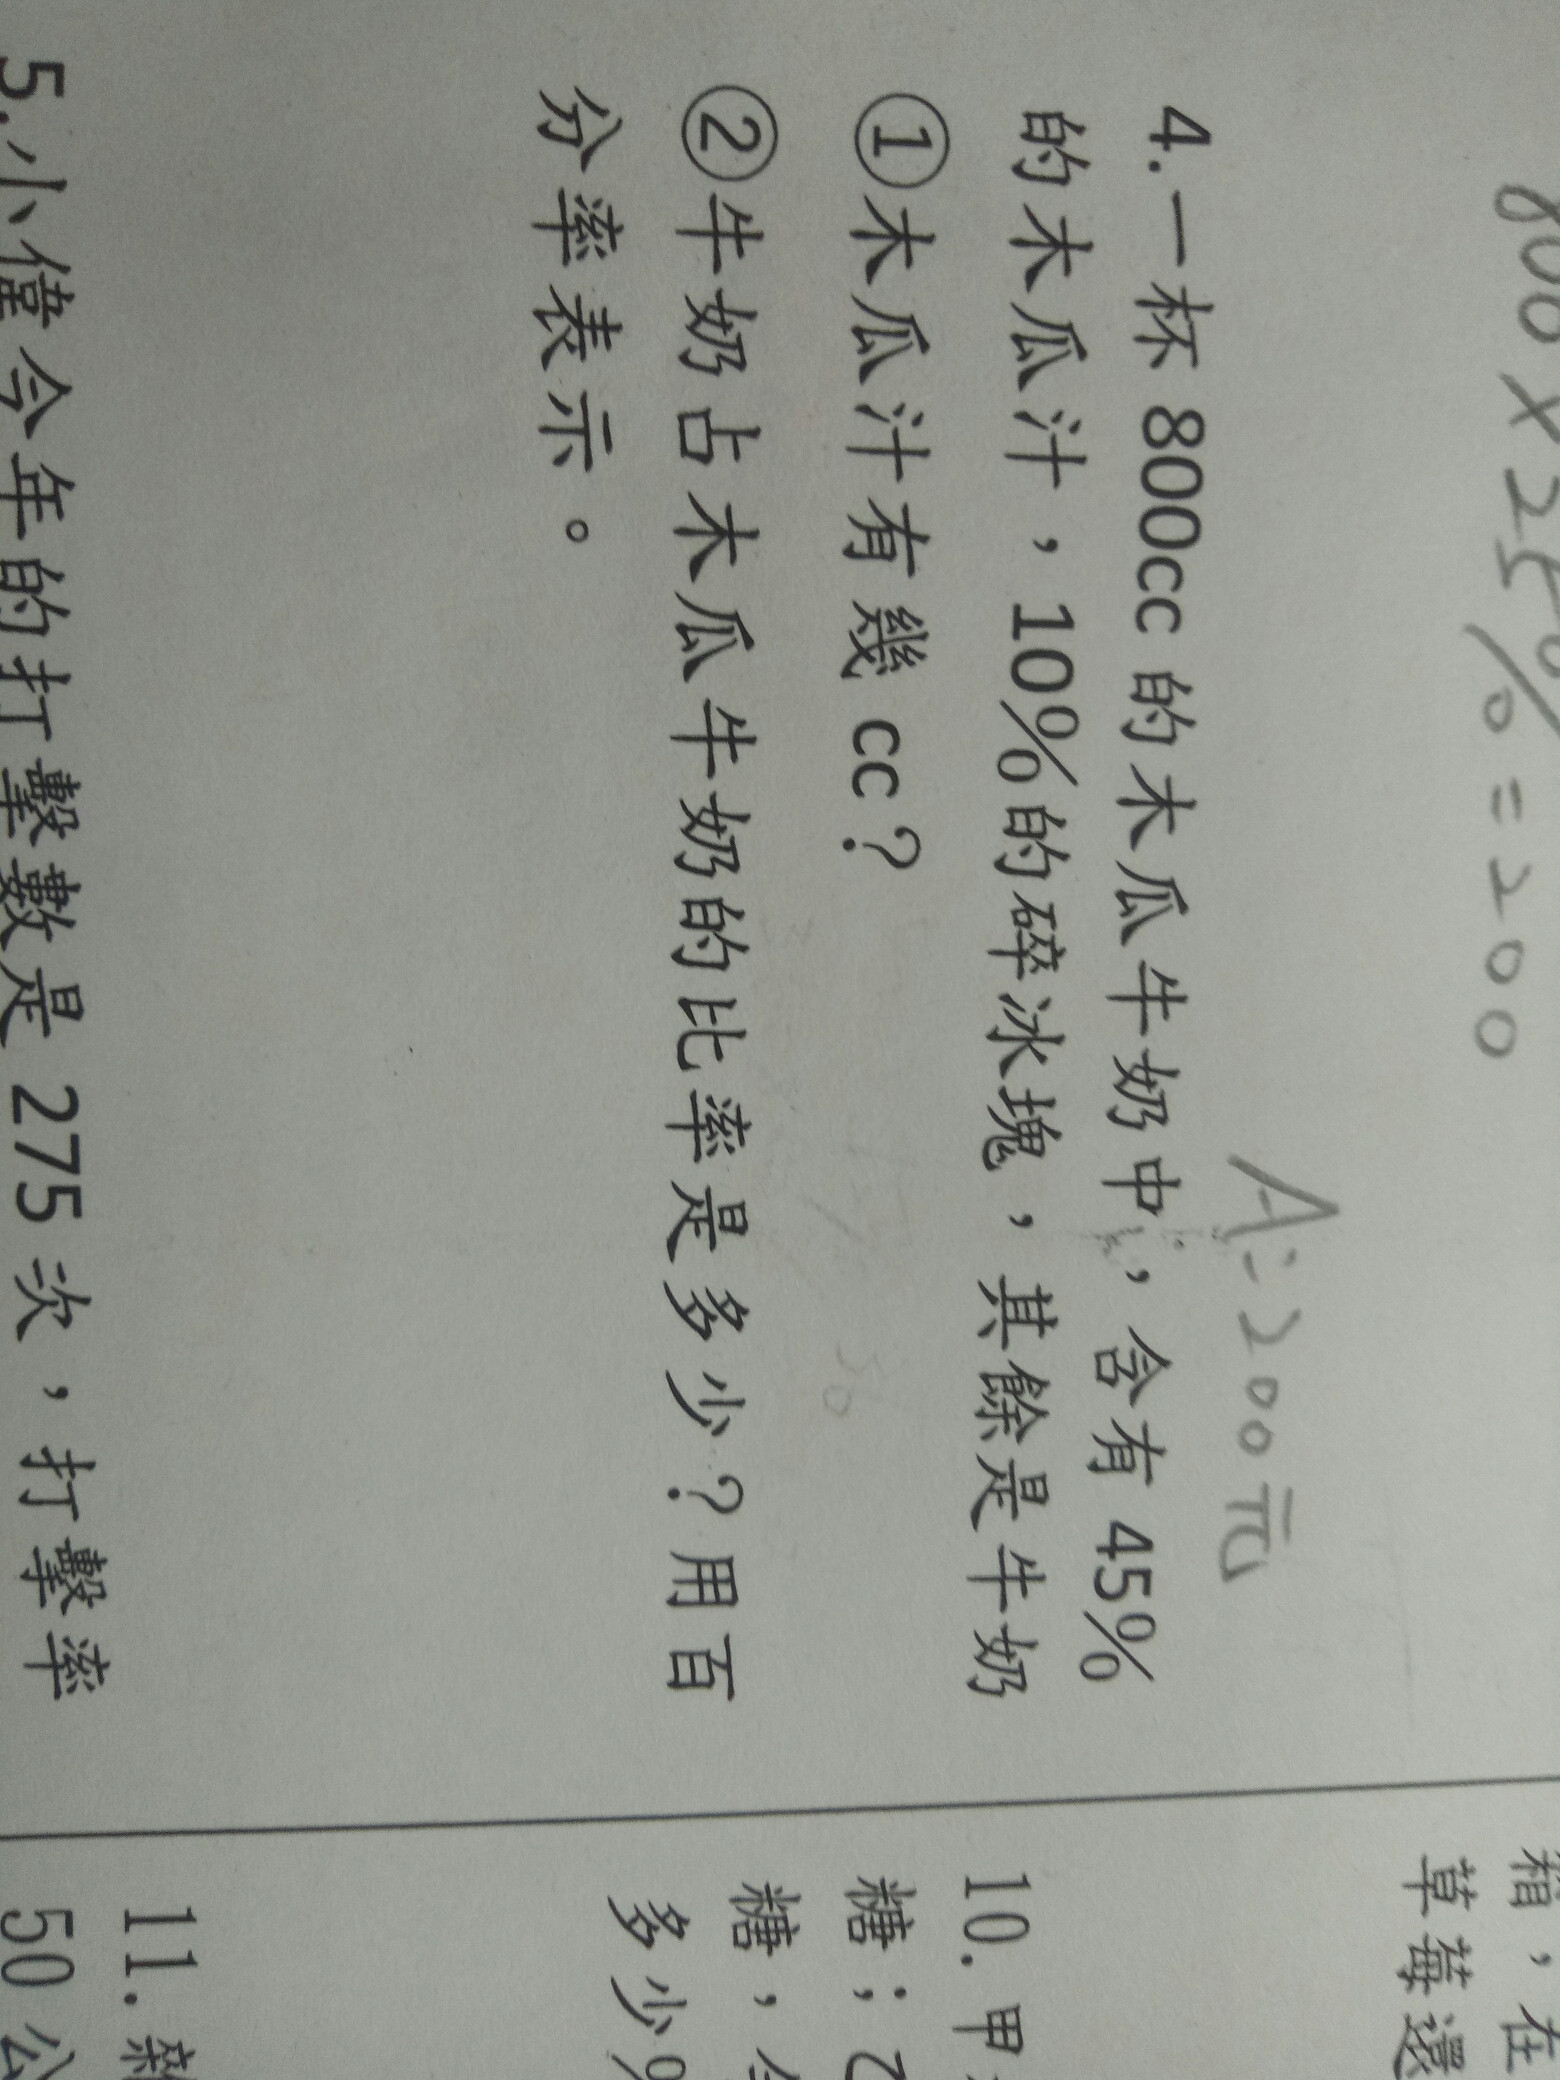 800×25%=200
A:200元
4.一杯 800cc 的木瓜牛奶中,含有 45%
的木瓜汁,10%的碎冰塊,其餘是牛奶
①木瓜汁有幾 cc?
②牛奶占木瓜牛奶的比率是多少?用百
分率表示。
5.小偉今年的打擊數是 275 次,打擊率
箱,在
草莓還
10.甲
糖;乙
糖,
多少%
11.
50 公